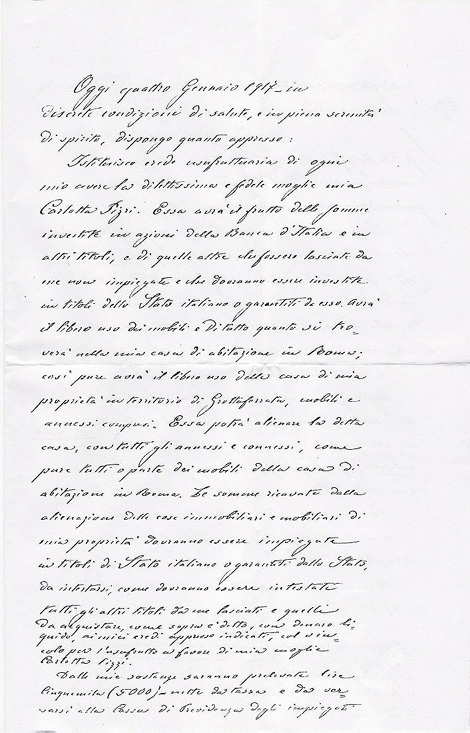 Oggi quattro Gennaio 1917 in
discrete condizioni di salute, e in piena serenità
di spirito, dispongo quanto appresso:
Istituisco erede usufruttuaria di ogni
mio avere la dilettissima e fedele moglie mia
Carlotta Tizzi. Essa avrà il frutto delle somme
investite in azioni della Banca d'Italia e in
altri titoli, e di quelle altre che fossero lasciati da
me non impiegate e che dovranno essere investite
in titoli dello Stato italiano o garantiti da esso. Avrà
il libero uso dei mobili e di tutto quanto si tro-
verà nella mia casa di abitazione in Roma;
così pure avrà il libero uso della casa di mia
proprietà in territorio di Grottaferrata, mobili e
annessi compresi. Essa potrà alienare la detta
casa, con tutti gli annessi e connessi, come
pure tutti o parte dei mobili della casa di
abitazione in Roma. Le somme ricavate dalla
alienazione delle cose immobiliari e mobiliari di
mia proprietà dovranno essere impiegate
in titoli di Stato italiano o garantiti dallo Stato,
da intestarsi, come dovranno essere intestate
tutti gli altri titoli da me lasciati e quelli
da acquistare, come sopra è detto, con denaro li-
quido, ai miei eredi appresso indicati, col vin-
colo per l'usufrutto a favore di mia moglie
Carlotta Tizzi.
Dalle mie sostanze saranno prelevate lire
Cinquemila (5000) nette da tassa e da ver-
sarsi alla Cassa di Previdenza degli impiegati